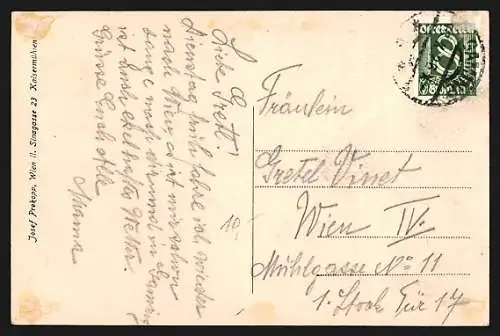 Josef Prokopp, Wien II. Sinagasse 23 Kaisermühlen
Liebe Gretl!
Dienstag früh fahre ich wieder
nach Wien, es ist mir schon
bange nach dir und in
ist auch ekelhaftes Wetter.
Grüsse Euch Alle
Mama
10.-
Fräulein
Gretel Vinet
Wien IV.
Mühlgasse No 11
1. Stock Tür 17